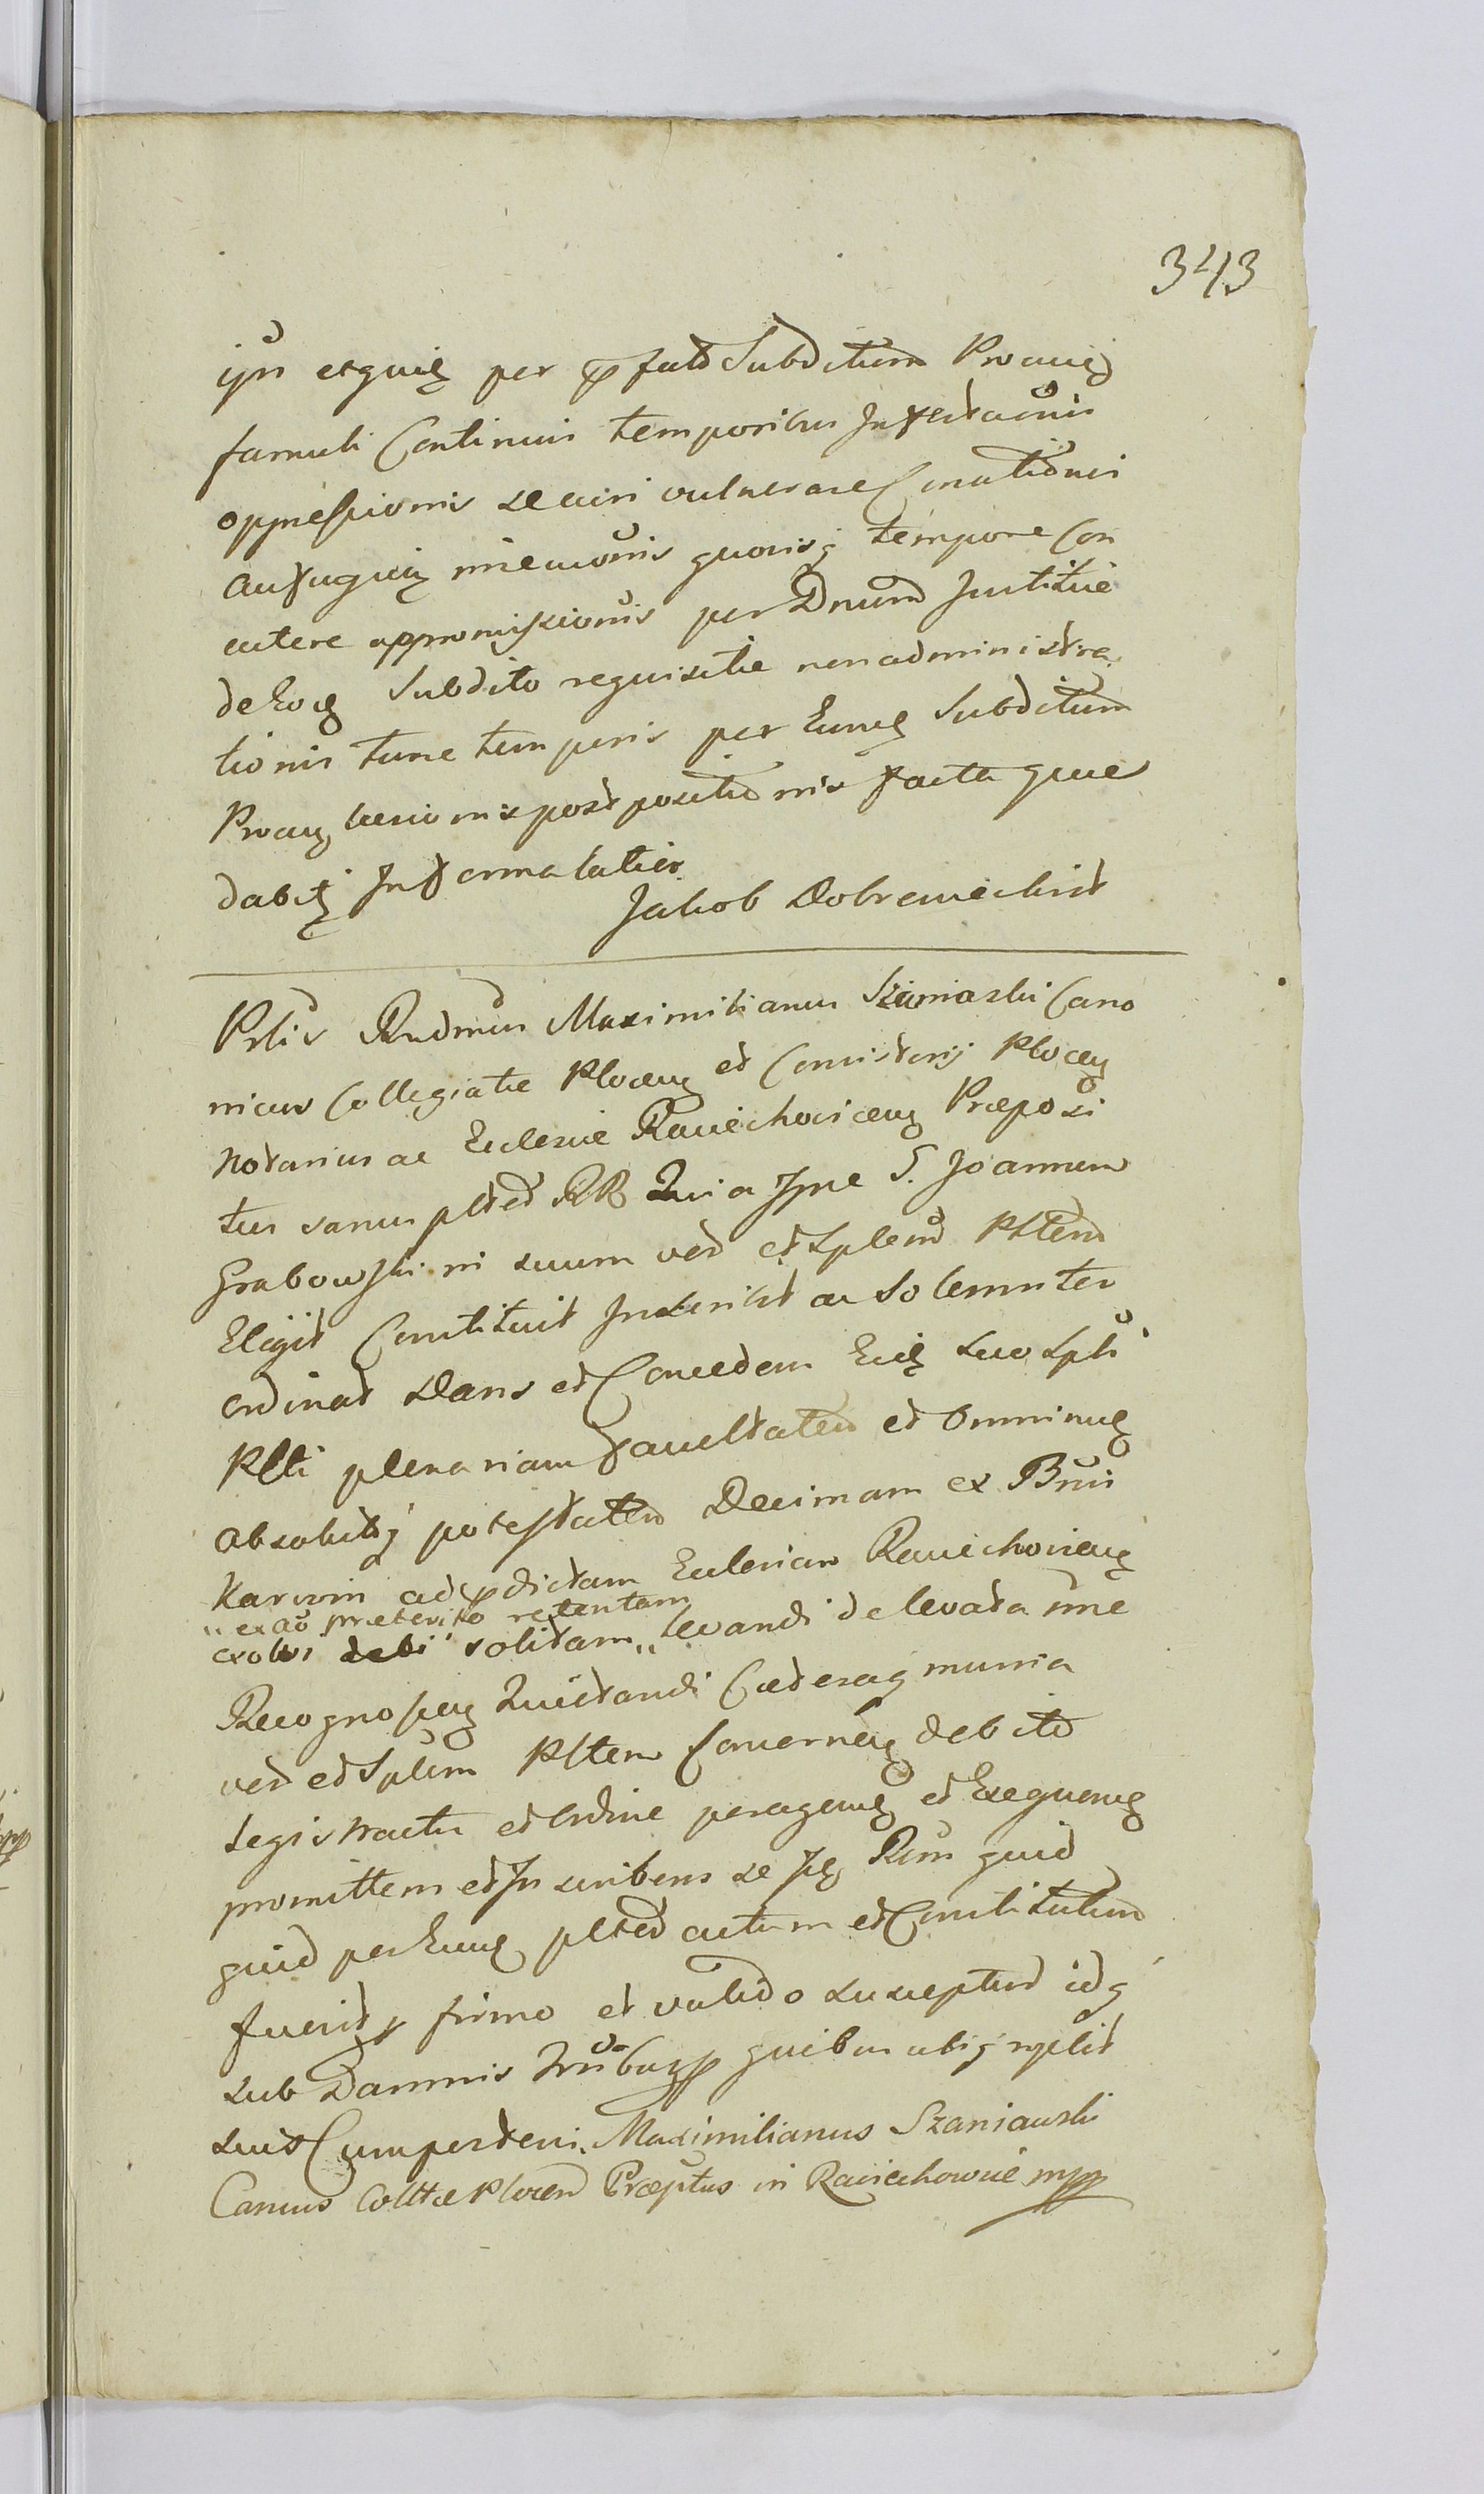 343
ipsi eignig per pfatd Subditum Prouig
famuli Continuis temporibus Infestaõnis
oppressionis seviri vulnerare Conationis
aufugig mieuõnis quovisq tempore Con
cutere appromissionis per Dnum Justitiæ
de Eog Subdito requisitæ non administra
tionis tunc temporis per Eung Subditum
Proug læsionis postpositionis facta quæ
dabit Informatior
Jakob Dobrzeniechist
Prlis Rndmus Maximilianus Szaniaski Cano
nicus Collegiatæ Ploceng et Consistorij Ploceng
Notarius ac Ecclesiæ Raciechoviceng Præposi
tus sanus plted RR Quia Ipse S. Joannem
Grabowski in suum ved et Splem Pltem
Elegit Constituit Inscribit ac Solemniter
ordinat Dans et Concedens Eidg suo Spli
Plti plenariam Facultatem et omnimug
absolutq potestatem Decimam ex Bnis
Karwin ad pdictam Ecclesiam Raciechoviceng
„ ex aõ præterito retentam
exolvi debi solitam „ levandi de levata sme
Recognosceng Quietandi Cæteraq munia
ved et Splem Pltem Concerneng debito
Legis tractu et ordine perageng et Exequeng
promittens et Inscribens se Ips Rtm quid
quid per Eung plted actum et Constitutum
fuerit p firmo et valido suscepturd idq
sub Damnis Trñbusqz quibus ubiq rplit
suis Cumperteri. Maximilianus Szaniawski
Cancus Collttæ Plocen Præptus in Raciechowice mpp